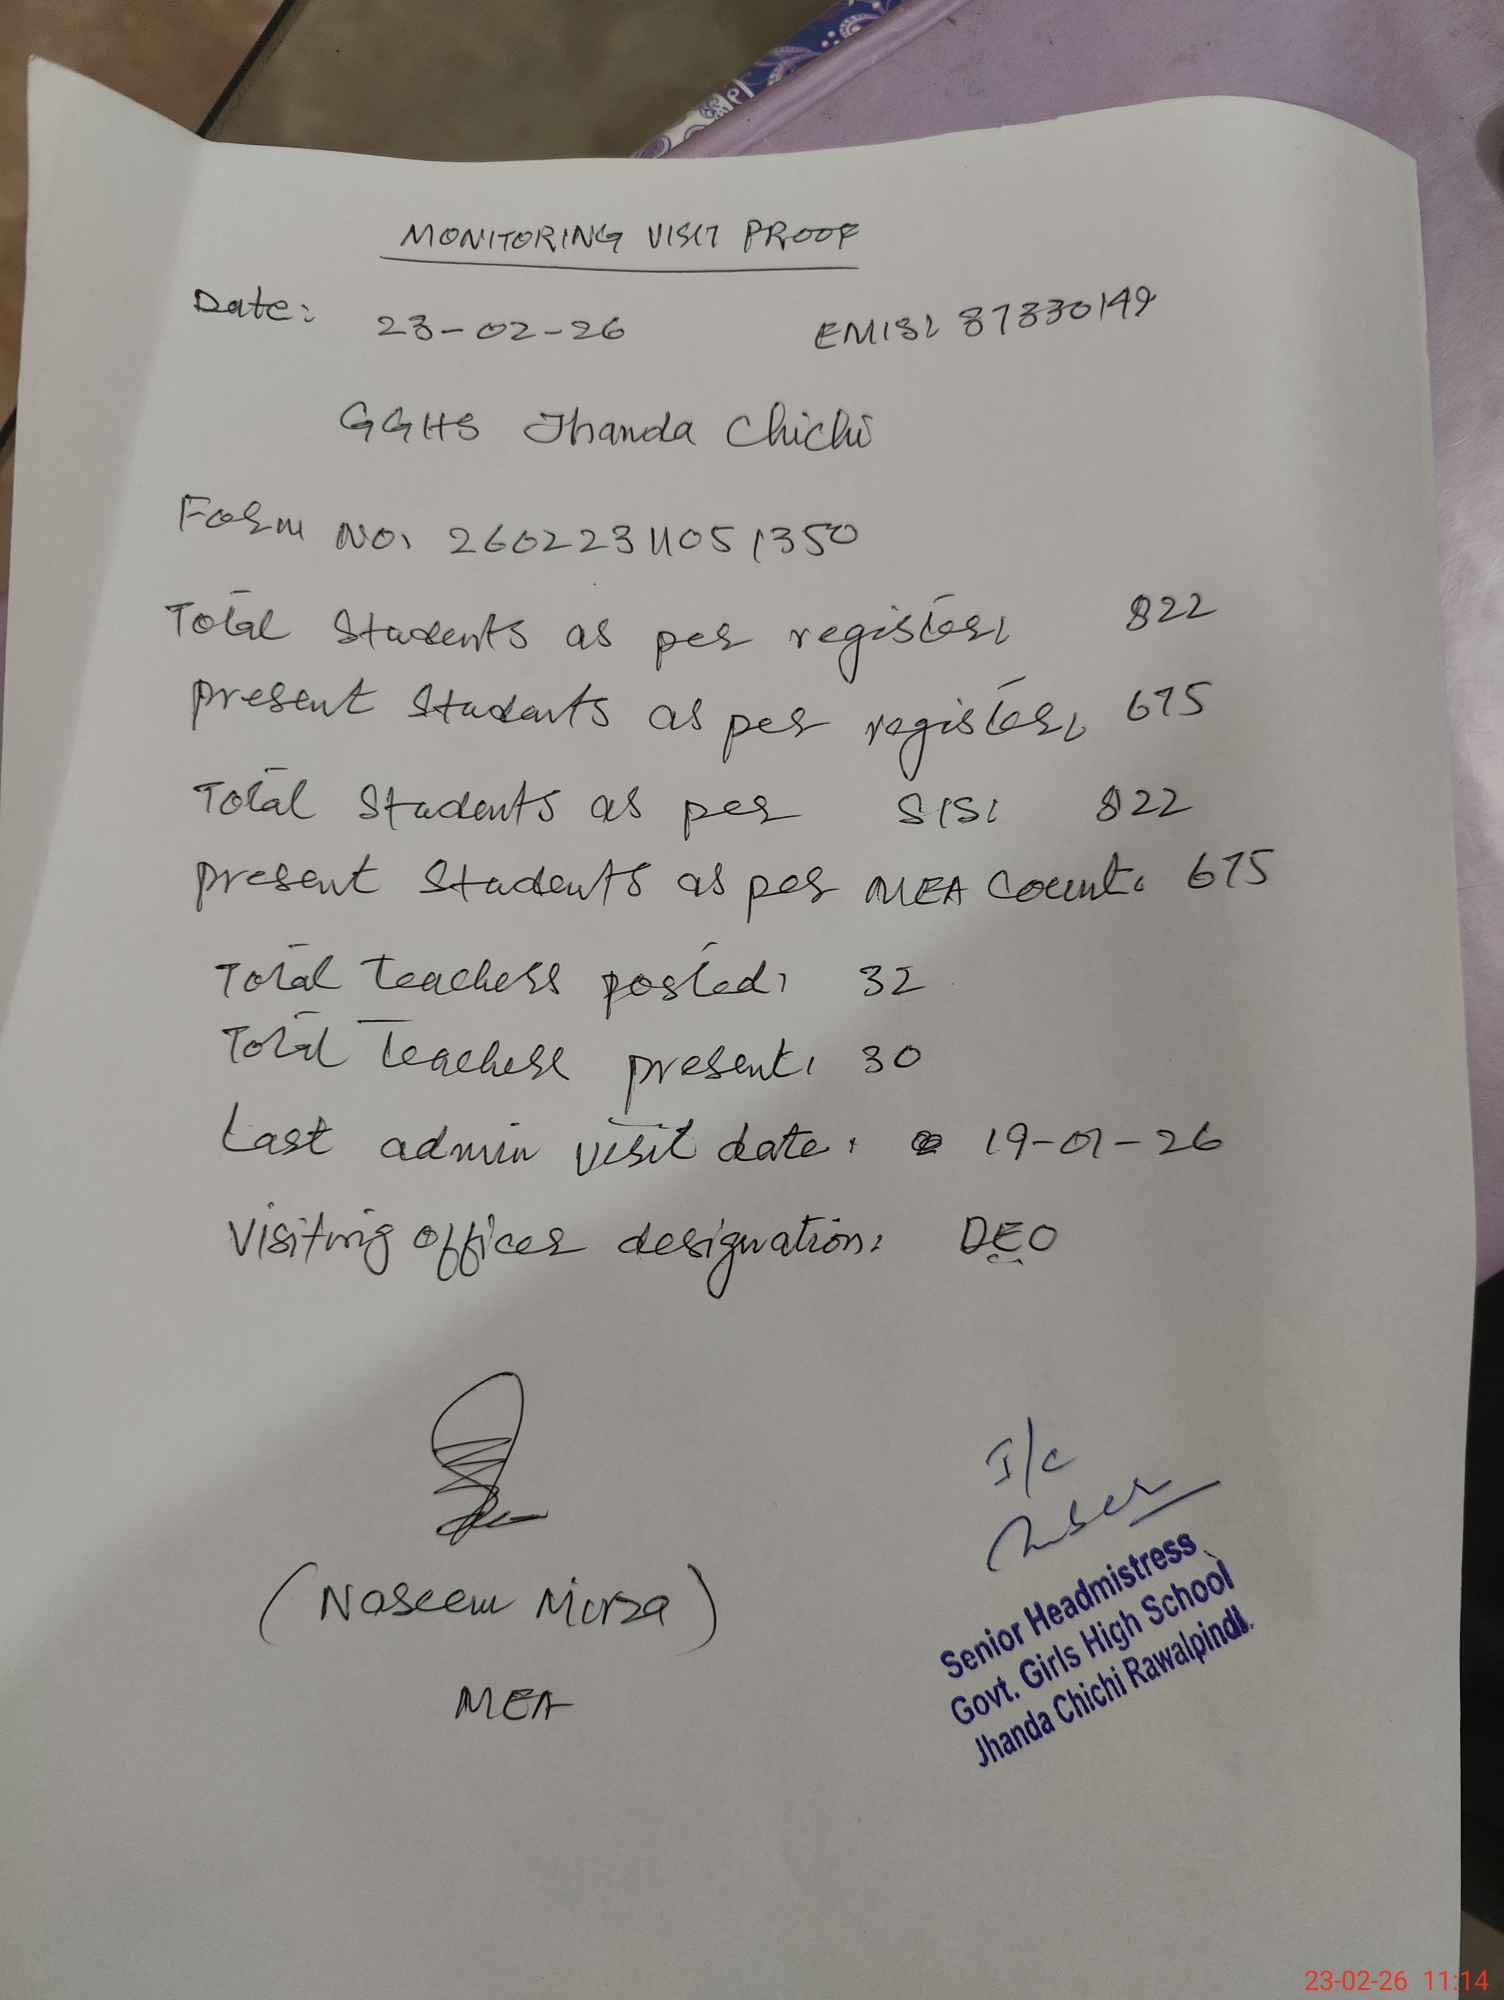 MONITORING VISIT PROOF
Date: 23-02-26 EMIS: 37330149
GGHS Jhanda Chichi
Form No. 26022311051350
Total Students as per register: 822
Present Students as per register: 675
Total Students as per SIS: 822
Present Students as per MEA Count: 675
Total Teachers posted: 32
Total Teachers present: 30
Last admin visit date: 19-01-26
Visiting officer designation: DEO
I/c
(Naseem Mirza)
MEA
Senior Headmistress
Govt. Girls High School
Jhanda Chichi Rawalpindi.
23-02-26 11:14